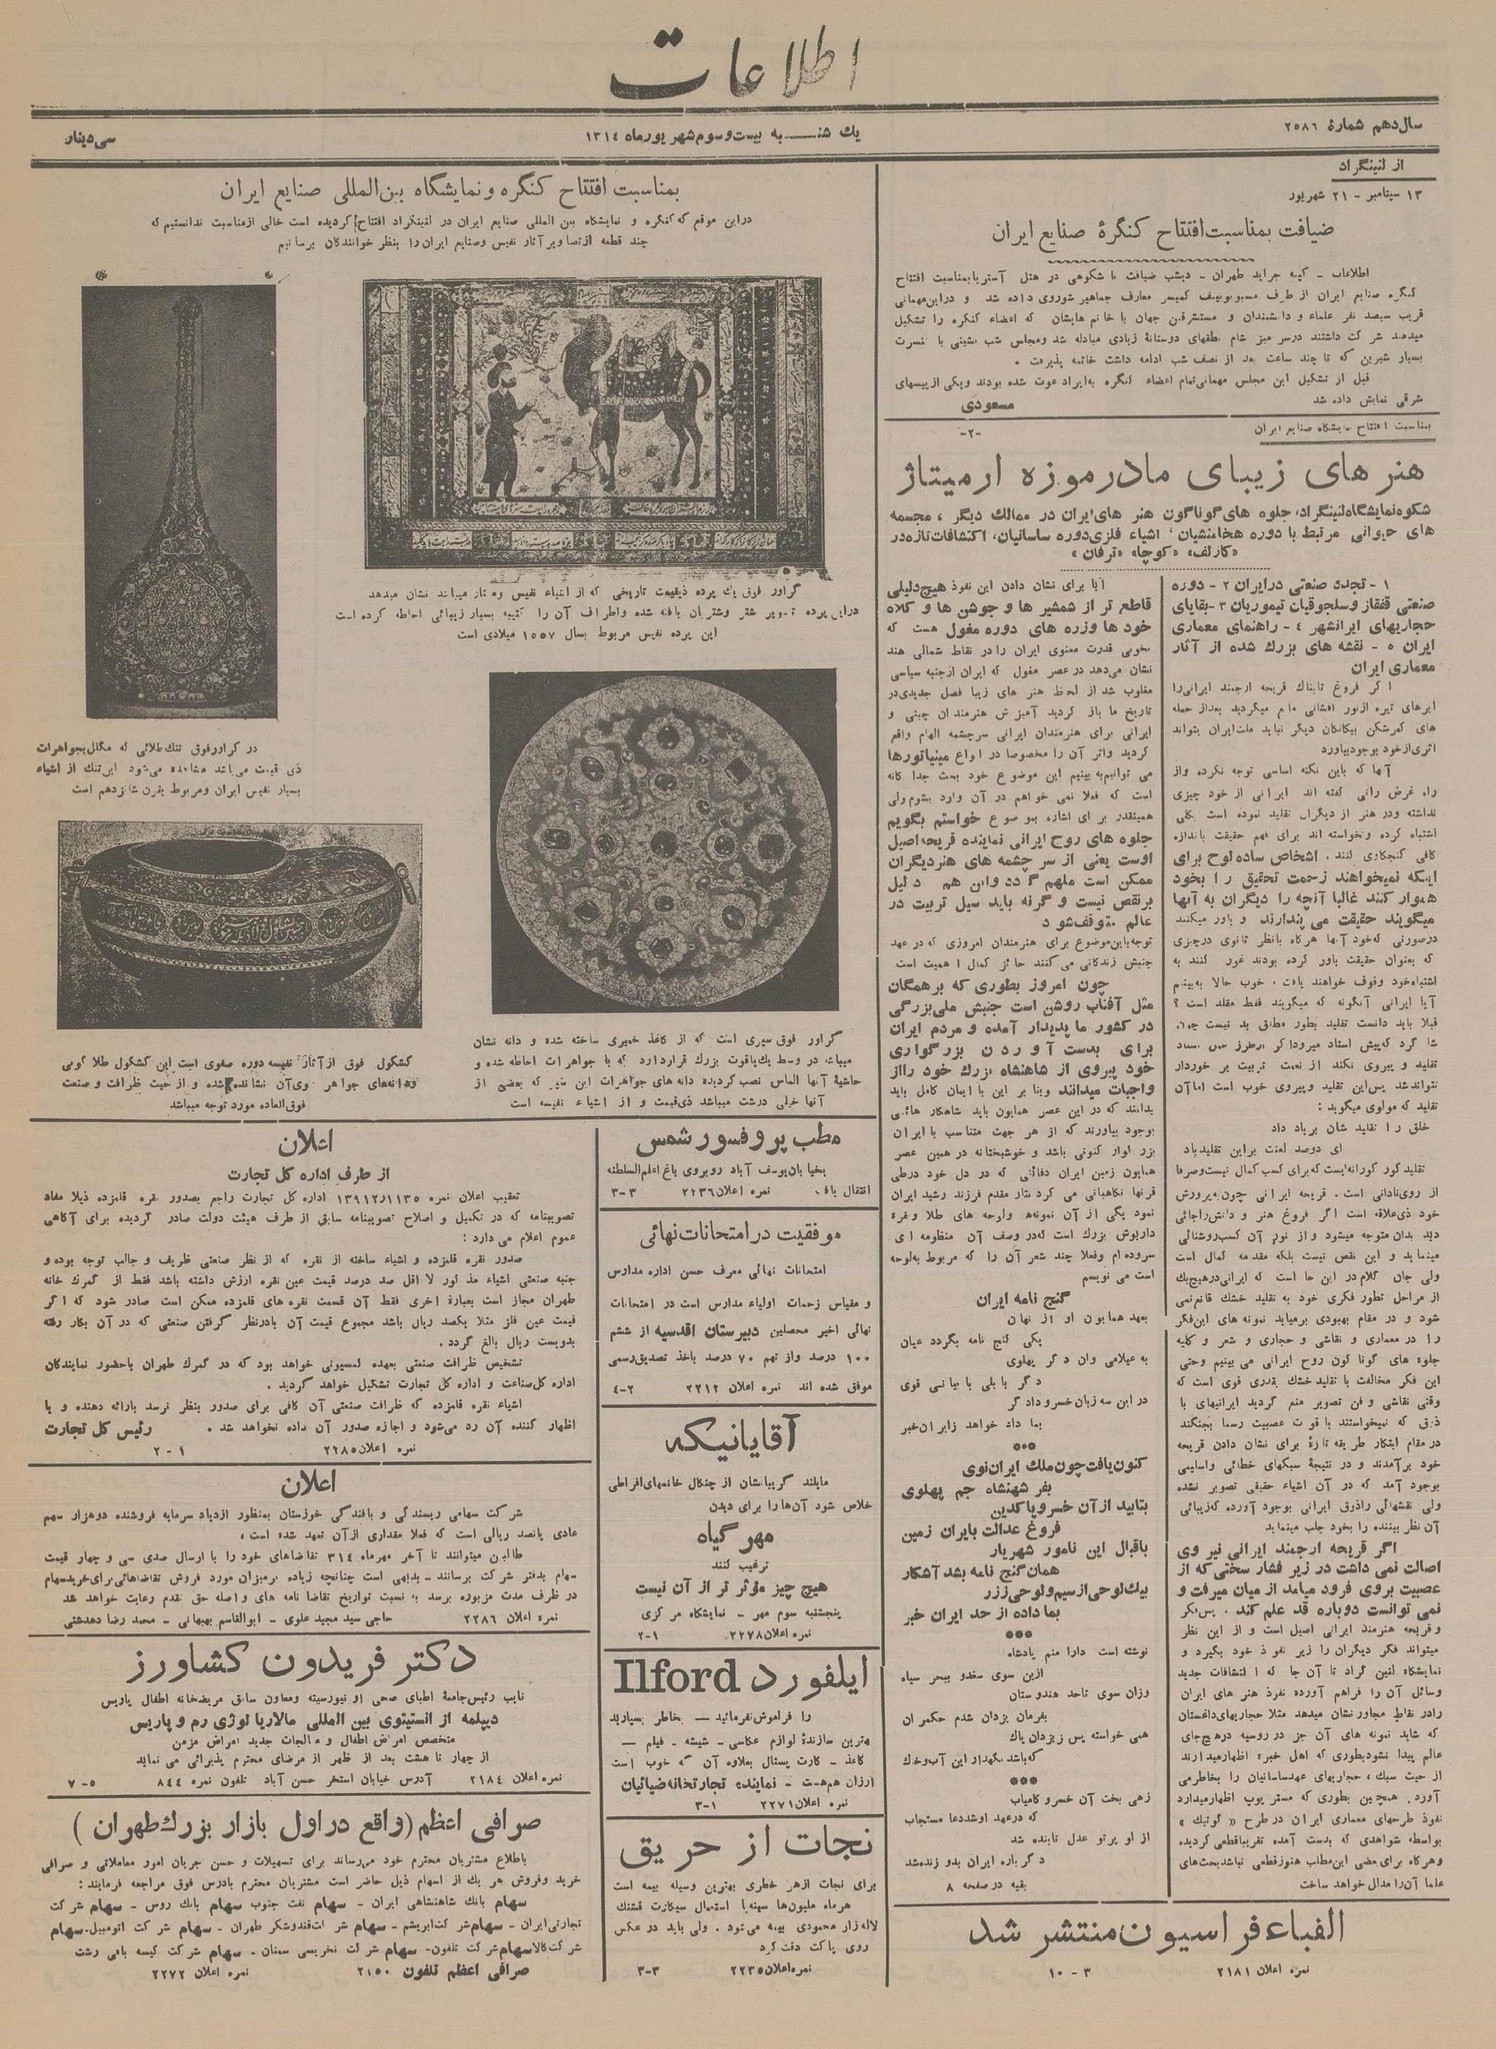 اطلاعات
سال دهم شمارهٔ ۲۵۸۶
یك شنبه بیست و سوم شهریور ماه ۱۳۱٤
سی دینار
از لنینگراد
۱۳ سپتامبر - ۲۱ شهریور
ضیافت بمناسبت افتتاح کنگرهٔ صنایع ایران
اطلاعات - کلیه جراید طهران - دیشب ضیافت با شکوهی در هتل آستریا بمناسبت افتتاح
کنگره صنایع ایران از طرف کمیسر معارف جماهیر شوروی داده شد و دراین مهمانی
قریب سیصد نفر علماء و دانشمندان و مستشرقین جهان با خانم هایشان که اعضاء کنگره را تشکیل
میدهند شرکت داشتند درسر میز شام نطقهای دوستانهٔ زیادی مبادله شد ومجلس شب نشینی با مسرت
بسیار شیرین که تا چند ساعت بعد از نصف شب ادامه داشت خاتمه پذیرفت .
قبل از تشکیل این مجلس مهمانی تمام اعضاء کنگره به اپرا دعوت شده بودند ویکی از پیسهای
شرقی نمایش داده شد
مسعودی
بمناسبت افتتاح نمایشگاه صنایع ایران
-۲-
هنر های زیبای ما در موزه ارمیتاژ
شکوه نمایشگاه لنینگراد، جلوه های گوناگون هنر های ایران در ممالك دیگر ، مجسمه
های حیوانی مرتبط با دوره هخامنشیان، اشیاء فلزی دوره ساسانیان، اکتشافات تازه در
«کارلف» «کوچا» «ترفان»
۱ - تجدد صنعتی درایران ۲ - دوره
صنعتی قفقاز وسلجوقیات تیموریان ۳ -بقایای
حجاریهای ایرانشهر ٤ - راهنمای معماری
ایران ٥ - نقشه های بزرك شده از آثار
معماری ایران
اگر فروغ تابناك قریحه ارجمند ایرانی را
ابرهای تیره از نور افشانی مانع میگردید بعد از حمله
های کمرشکن بیگانگان دیگر نباید ملت ایران بتواند
اثری از خود بوجود بیاورد
آنها که باین نکته اساسی توجه نکرده و از
راه غرض رانی گفته اند ایرانی از خود چیزی
نداشته ودر هنر از دیگران تقلید نموده است بکلی
اشتباه کرده و نخواسته اند برای فهم حقیقت باندازه
کافی کنجکاوی کنند . اشخاص ساده لوح برای
اینکه نمیخواهند زحمت تحقیق را بخود
هموار کنند غالبا آنچه را دیگران به آنها
میگویند حقیقت می پندارند و باور میکنند
درصورتی که خود آنها هرگاه بانظر ثانوی درچیزی
که بعنوان حقیقت باور کرده بودند غور کنند به
اشتباه خود وقوف خواهند یافت . خوب حالا به بینیم
آیا ایرانی آنگونه که میگویند فقط مقلد است ؟
قبلا باید دانست تقلید بطور مطلق بد نیست چون
تقلید و پیروی نکند از نعمت تربیت بر خوردار
نتواند شد پس این تقلید و پیروی خوب است اما آن
تقلید که مولوی میگوید :
خلق را تقلید شان برباد داد
ای دوصد لعنت براین تقلید باد
تقلید کور کورانه ایست که برای کسب کمال نیست وصرفا
از روی نادانی است . قریحه ایرانی چون به پرورش
خود ذی علاقه است اگر فروغ هنر و دانش را جائی
دید بدان متوجه میشود و از نور آن کسب روشنائی
مینماید و این نقص نیست بلکه مقدمه کمال است
ولی جان کلام در این جا است که ایرانی در هیچ یك
از مراحل تطور فکری خود به تقلید خشك قانع نمی
شود و در مقام بهبودی برمیاید نمونه های این فکر
را در معماری و نقاشی و حجاری و شعر و کلیه
جلوه های گونا گون روح ایرانی می بینیم وحتی
این فکر مخالفت با تقلید خشك بقدری قوی است که
وقتی نقاشی و فن تصویر منع گردید ایرانیهای با
ذوق که نمیخواستند با قوت عصبیت رسما بجنگند
در مقام ابتکار طریقه تازهٔ برای نشان دادن قریحه
خود برآمدند و در نتیجهٔ سبکهای خطائی واسلیمی
بوجود آمد که در آن اشیاء حقیقی تصویر نشده
ولی نقشهائی را ذوق ایرانی بوجود آورده که زیبائی
آن نظر بیننده را بخود جلب مینماید
اگر قریحه ارجمند ایرانی نیروی
اصالت نمی داشت در زیر فشار سختی که از
عصبیت بروی فرود میامد از میان میرفت و
نمی توانست دوباره قد علم کند . پس فکر
و قریحه هنرمند ایرانی اصیل است و از این نظر
میتواند فکر دیگران را زیر نفوذ خود بگیرد و
نمایشگاه لنین گراد تا آن جا که اکتشافات جدید
وسائل آن را فراهم آورده نفوذ هنر های ایران
را در نقاط مجاور نشان میدهد مثلا حجاریهای داغستان
که شاید نمونه های آن جز در روسیه درهیچ جای
عالم پیدا نشود بطوری که اهل خبره اظهار میدارند
از حیث سبك ، حجاریهای عهد ساسانیان را بخاطر می
آورد . همچنین بطوری که مستر پوپ اظهار میدارد
نفوذ طرحهای معماری ایران در طرح « گوتیك »
بواسطه شواهدی که بدست آمده تقریبا قطعی گردیده
وهرگاه برای بعضی این مطلب هنوز قطعی نباشد بحث های
علما آن را مدلل خواهد ساخت
آیا برای نشان دادن این نفوذ هیچ دلیلی
قاطع تر از شمشیر ها و جوشن ها و کلاه
خود ها وزره های دوره مغول هست که
بخوبی قدرت معنوی ایران را در نقاط شمالی هند
نشان می‌دهد در عصر مغول که ایران ازجنبه سیاسی
مغلوب شد از لحاظ هنر های زیبا فصل جدیدی در
تاریخ ما باز گردید آمیزش هنرمندان چینی و
ایرانی برای هنرمندان ایرانی سرچشمه الهام واقع
گردید واثر آن را مخصوصا در انواع مینیاتورها
می توانیم به بینیم این موضوع خود بحث جدا گانه
است که فعلا نمی خواهم در آن وارد بشوم ولی
همینقدر برای اشاره بموضوع خواستم بگویم
جلوه های روح ایرانی نماینده قریحه اصیل
اوست یعنی از سر چشمه های هنر دیگران
ممکن است ملهم گردد واین هم دلیل
بر نقص نیست و گرنه باید سیل تربیت در
عالم متوقف شود
توجه باین موضوع برای هنرمندان امروزی که در عهد
جنبش زندگانی می کنند حائز کمال اهمیت است
چون امروز بطوری که بر همگان
مثل آفتاب روشن است جنبش ملی بزرگی
در کشور ما پدیدار آمده و مردم ایران
برای بدست آوردن بزرگواری
خود پیروی از شاهنشاه بزرك خود را از
واجبات میدانند وبنا بر این با ایمان کامل باید
بدانند که در این عصر همایون باید شاهکار هائی
بوجود بیاورند که از هر جهت متناسب با ایران
بزرگوار کنونی باشد و خوشبختانه در همین عصر
همایون زمین ایران دفائنی که در دل خود در طی
قرنها نگاهبانی می کرد نثار مقدم فرزند رشید ایران
نمود یکی از آن نمونه ها ولوحه های طلا و نقره
داریوش بزرك است که در وصف آن منظومه ای
سروده ام وفعلا چند شعر آن را که مربوط به لوحه
است می نویسم
گنج نامه ایران
بعهد همایون او از نهان
یکی گنج نامه بگردد عیان
به عیلامی وان دگر پهلوی
دگر بابلی با بیانی قوی
در این سه زبان خسرو دادگر
بما داد خواهد ز ایران خبر
***
کنون یافت چون ملك ایران نوی
بفر شهنشاه جم پهلوی
بتابید از آن خسرو پاکدین
فروغ عدالت بایران زمین
باقبال این نامور شهریار
همان گنج نامه بشد آشکار
بیك لوحی از سیم و لوحی ز زر
بما داده از حد ایران خبر
***
نوشته است دارا منم پادشاه
ازین سوی سغدو ببحر سیاه
وزان سوی تاحد هندوستان
بفرمان یزدان شدم حکمران
همی خواسته پس ز یزدان پاك
که باشد نگهدار این آب و خاك
***
زهی بخت آن خسرو کامیاب
که در عهد او شد دعا مستجاب
از او پرتو عدل تابنده شد
دگر باره ایران بدو زنده شد
بقیه در صفحه ۸
الفباء فراسیون منتشر شد
نمره اعلان ۲۱۸۱
۳ - ۱۰
بمناسبت افتتاح کنگره و نمایشگاه بین المللی صنایع ایران
دراین موقع که کنگره و نمایشگاه بین المللی صنایع ایران در لنینگراد افتتاح گردیده است خالی از مناسبت ندانستیم که
چند قطعه از تصاویر آثار نفیس وصنایع ایران را بنظر خوانندگان برسانیم
گراور فوق یك پرده ذیقیمت تاریخی که از اشیاء نفیس وممتاز میباشد نشان میدهد
دراین پرده تصویر شتر وشتربان بافته شده واطراف آن را کتیبه بسیار زیبائی احاطه کرده است
این پرده نفیس مربوط بسال ۱۵۵۷ میلادی است
در گراور فوق تنك طلائی که مکلل بجواهرات
ذی قیمت می باشد مشاهده می شود این تنك از اشیاء
بسیار نفیس ایران ومربوط بقرن شانزدهم است
گراور فوق سپری است که از کاغذ خمیری ساخته شده و دانه نشان
میباشد در وسط یك یاقوت بزرك قراردارد که با جواهرات احاطه شده و
حاشیهٔ آنها الماس نصب گردیده دانه های جواهرات این سپر که بعضی از
آنها خیلی درشت میباشد ذی قیمت و از اشیاء نفیسه است
کشکول فوق از آثار نفیسه دوره صفوی است این کشکول طلا کوبی
ودانه های جواهر روی آن نشانده شده و از حیث ظرافت و صنعت
فوق العاده مورد توجه میباشد
مطب پروفسور شمس
بخیابان یوسف آباد روبروی باغ اعلم السلطنه
انتقال یافت نمره اعلان ۲۲۳٦ ۳-۳
موفقیت در امتحانات نهائی
امتحانات نهائی معرف حسن اداره مدارس
و مقیاس زحمات اولیاء مدارس است در امتحانات
نهائی اخیر محصلین دبیرستان اقدسیه از ششم
۱۰۰ درصد و از نهم ۷۰ درصد باخذ تصدیق رسمی
موفق شده اند نمره اعلان ۲۲۱۲ ٤-۲
آقایانیکه
مایلند گریبانشان از چنگال خانمهای افراطی
خلاص شود آن ها را برای دیدن
مهر گیاه
ترغیب کنند
هیچ چیز مؤثر تر از آن نیست
پنجشنبه سوم مهر - نمایشگاه مرکزی
نمره اعلان ۲۲۷۸ ۲-۱
ایلفورد Ilford
را فراموش نفرمائید — بخاطر بسپارید
بهترین سازندهٔ لوازم عکاسی - شیشه - فیلم —
کاغذ - کارت پستال بعلاوه آن که خوب است
ارزان هم هست - نماینده تجارتخانه ضیائیان
نمره اعلان ۲۲۷۱ ۳-۱
نجات از حریق
برای نجات از هر خطری بهترین وسیله بیمه است
هر ماه ملیون ها سهنیا استعمال سیگارت قشنك
لاله زار محمودی بیمه می‌شود . ولی باید در عکس
روی پاکت دقت کرد
نمره اعلان ۲۲۳٥ ۳-۳
اعلان
از طرف اداره کل تجارت
تعقیب اعلان نمره ۱۳۹۱۲/۱۱۳٥ اداره کل تجارت راجع بصدور نقره قلمزده ذیلا مفاد
تصویبنامه که در تکمیل و اصلاح تصویبنامه سابق از طرف هیئت دولت صادر گردیده برای آگاهی
عموم اعلام می دارد :
صدور نقره قلمزده و اشیاء ساخته از نقره که از نظر صنعتی ظریف و جالب توجه بوده و
جنبه صنعتی اشیاء مذکور لااقل صد درصد قیمت عین نقره ارزش داشته باشد فقط از گمرك خانه
طهران مجاز است بعبارة اخری فقط آن قسمت نقره های قلمزده ممکن است صادر شود که اگر
قیمت عین فلز مثلا یکصد ریال باشد مجموع قیمت آن بادر نظر گرفتن صنعتی که در آن بکار رفته
بدویست ریال بالغ گردد .
تشخیص ظرافت صنعتی بعهده کمیسیونی خواهد بود که در گمرك طهران باحضور نمایندگان
اداره کل صناعت و اداره کل تجارت تشکیل خواهد گردید .
اشیاء نقره قلمزده که ظرافت صنعتی آن کافی برای صدور بنظر نرسد بارائه دهنده و یا
اظهار کننده آن رد می‌شود و اجازه صدور آن داده نخواهد شد . رئیس کل تجارت
نمره اعلان ۲۲۸٥ ۲-۱
اعلان
شرکت سهامی ریسندگی و بافندگی خوزستان بمنظور ازدیاد سرمایه فروشنده دو هزار سهم
عادی پانصد ریالی است که فعلا مقداری از آن تعهد شده است .
طالبین میتوانند تا آخر مهرماه ۳۱٤ تقاضاهای خود را با ارسال صدی سی و چهار قیمت
سهام بدفتر شرکت برسانند - بدیهی است چنانچه زیاده بر میزان مورد فروش تقاضاهائی برای خرید سهام
در ظرف مدت مزبوره برسد به نسبت تواریخ تقاضا نامه های واصله حق تقدم رعایت خواهد شد
نمره اعلان ۲۲۸٦ حاجی سید مجید علوی - ابوالقاسم بهبهانی - محمد رضا دهدشتی
دکتر فریدون کشاورز
نایب رئیس جامعهٔ اطبای صحی اونیورسیته ومعاون سابق مریضخانه اطفال پاریس
دیپلمه از انستیتوی بین المللی مالاریا لوژی رم و پاریس
متخصص امراض اطفال و معالجات جدید امراض مزمن
از چهار تا هشت بعد از ظهر از مرضای محترم پذیرائی می نماید
نمره اعلان ۲۱۸٤ آدرس خیابان استخر حسن آباد تلفون نمره ۸٤٤ ٥-۷
صرافی اعظم (واقع در اول بازار بزرك طهران )
باطلاع مشتریان محترم خود می‌رساند برای تسهیلات و حسن جریان امور معاملاتی و صرافی
خرید و فروش هر یك از اسهام ذیل حاضر است مشتریان محترم بادرس فوق مراجعه فرمایند :
سهام بانك شاهنشاهی ایران - سهام نفت جنوب سهام بانك روس - سهام شرکت
تجارتی ایران - سهام شرکت ابریشم - سهام شرکت قندوشکر طهران - سهام شرکت اتومبیل - سهام
شرکت کالا سهام شرکت تلفون - سهام شرکت نخریسی سمنان - سهام شرکت کیسه بافی رشت
صرافی اعظم تلفون ۲۱٥۰ نمره اعلان ۲۲۷۲